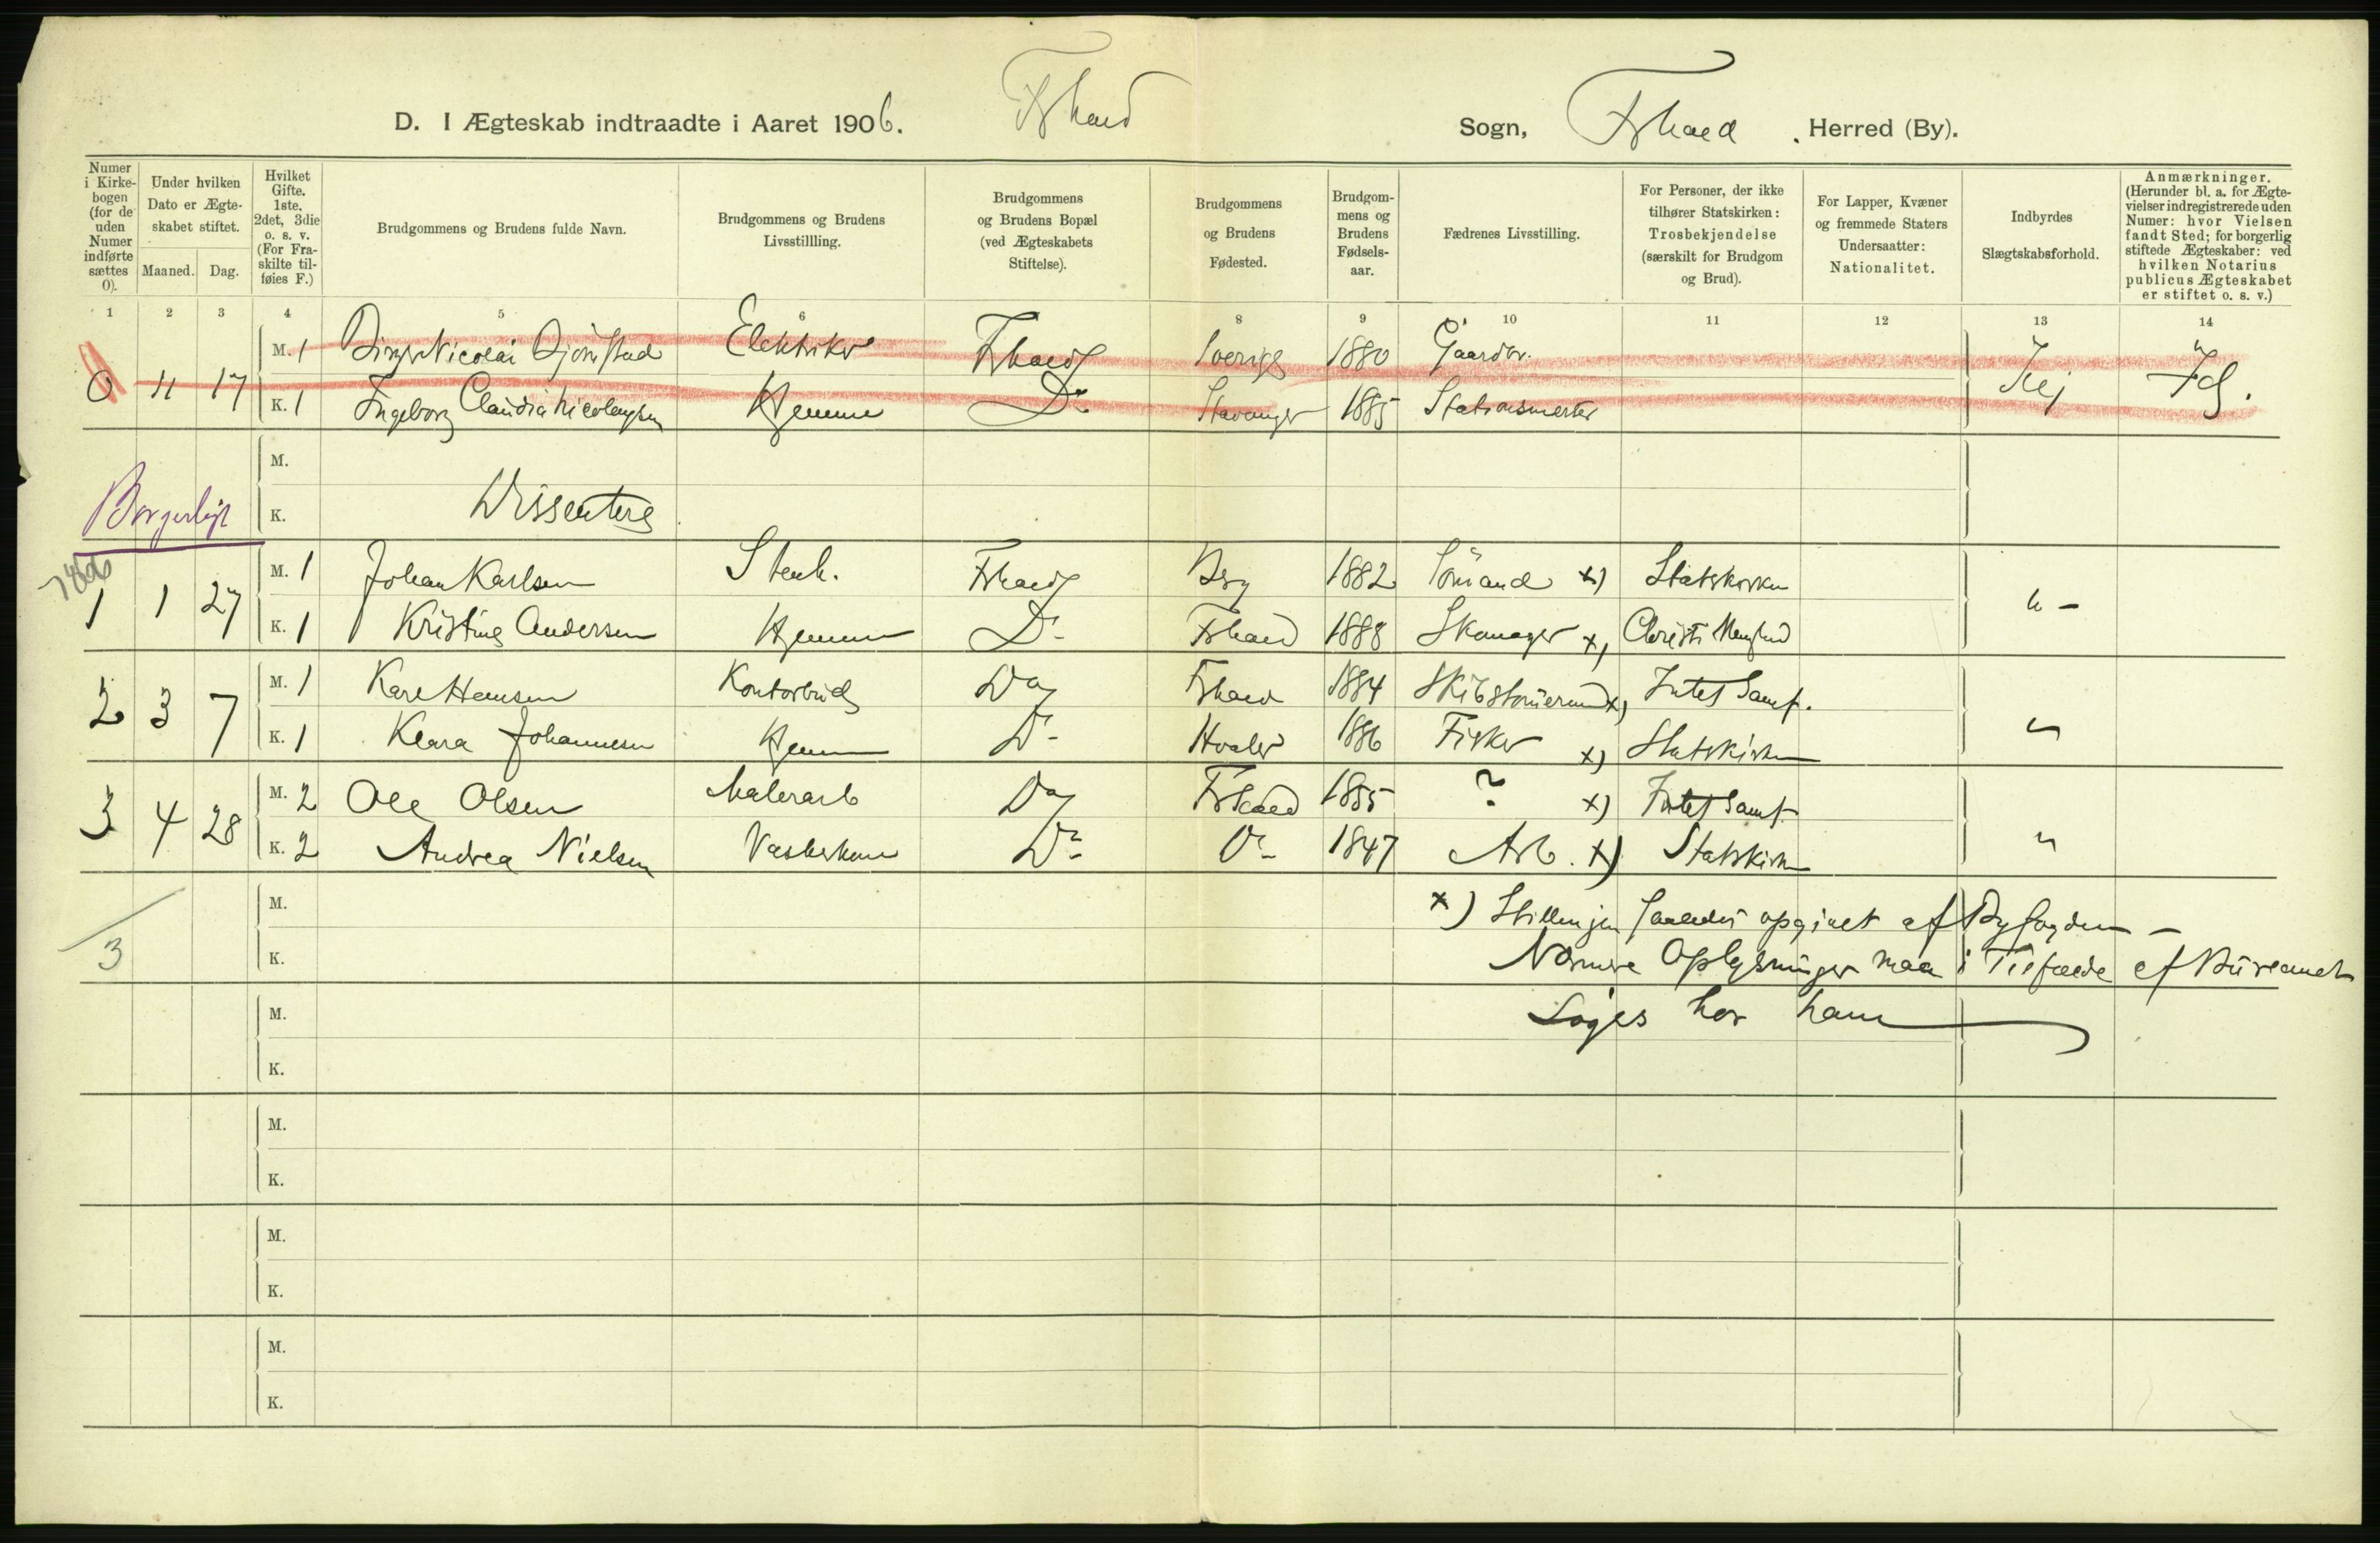 D. I Ægteskab indtraadte i Aaret 1906. Fshald Sogn, Fshald Herred (By).
Numer i Kirkebogen (for de uden Numer indførte sættes 0).
Under hvilken Dato er Ægteskabet stiftet.
Maaned. Dag.
Hvilket Gifte. 1ste. 2det, 3die o. s. v. (For Fraskilte tilføies F.)
Brudgommens og Brudens fulde Navn.
Brudgommens og Brudens Livsstillling.
Brudgommens og Brudens Bopæl (ved Ægteskabets Stiftelse).
Brudgommens og Brudens Fødested.
Brudgommens og Brudens Fødselsaar.
Fædrenes Livsstilling.
For Personer, der ikke tilhører Statskirken: Trosbekjendelse (særskilt for Brudgom og Brud).
For Lapper, Kvæner og fremmede Staters Undersaatter: Nationalitet.
Indbyrdes Slægtskabsforhold.
Anmærkninger. (Herunder bl. a. for Ægtevielser indregistrerede uden Numer: hvor Vielsen fandt Sted; for borgerlig stiftede Ægteskaber: ved hvilken Notarius publicus Ægteskabet er stiftet o. s. v.)
1 2 3 4 5 6 8 9 10 11 12 13 14
M. 1 Birger Nicolai Fshald Sverige 1880 Gaardbr.
0 11 17 Nej
K. 1 Ingeborg Claudia Nicolaysen Hjemme Do Stavanger 1885 Stationsmester
M.
Borgerligt K. Dissentere
M. 1 Johan Karlsen Stenh. Fshald Berg 1882 Sömand x) Statskirken
1 1 27 " -
K. 1 Kristine Andersen Hjemme Do - Fshald 1888 Skomager x)
M. 1 Karl Hansen Kontorbud Do Fshald 1884 Skibstömermd x) Intet Samf.
2 3 7 "
K. 1 Klara Johannesen Hjemme Do - Hvaler 1886 Fisker x) Statskirken
M. 2 Ole Olsen Malerarb Do Fshald 1855 ? x) Intet Samf.
3 4 28 "
K. 2 Andrea Nielsen Vaskerkone Do - Do - 1847 Arb. x) Statskirken
M. x) Stillingen saaledes opgivet af Byfogden -
3 K. Nærmere Oplysninger maa i Tilfælde af Bureauet
M. søges hos ham
K.
M.
K.
M.
K.
M.
K.